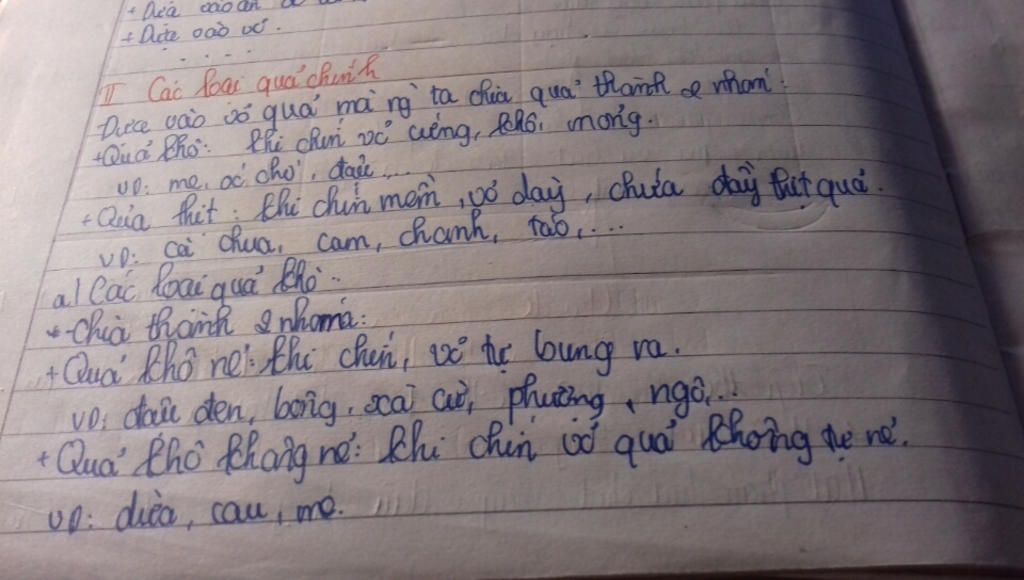 + Dựa vào
+ Dựa vào vỏ.
. . .
II Các loại quả chính
Dựa vào vỏ quả mà ng` ta chia quả thành 2 nhóm:
+Quả khô: khi chín vỏ cứng, khô, mỏng.
VD: me, óc chó, đậu...
+Quả thịt: khi chín mềm, vỏ dày, chứa đầy thịt quả.
VD: cà chua, cam, chanh, táo,....
a) Các loại quả khô:
+ Chia thành 2 nhóm:
+Quả khô nẻ: khi chín, vỏ tự bung ra.
VD: đậu đen, bông, xà cừ, phượng, ngô,..
+ Quả khô không nẻ: khi chín vỏ quả không tự nẻ.
VD: dừa, cau, me.